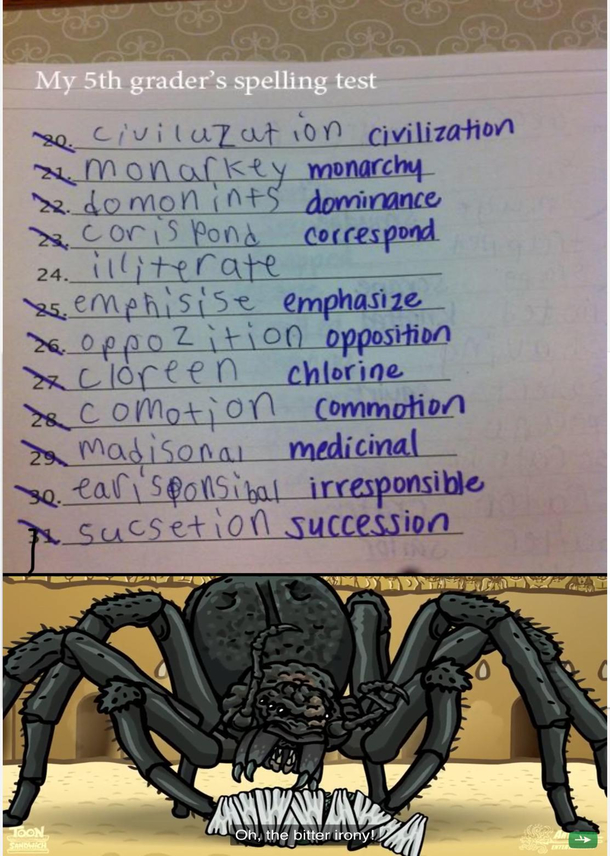 My 5th grader's spelling test
20. civiluzution civilization
21. monarkey monarchy
22. domonints dominance
23. corispond correspond
24. illiterate
25. emphisise emphasize
26. oppozition opposition
27. cloreen chlorine
28. comotion commotion
29. madisonal medicinal
30. earisponsibal irresponsible
31. sucsetion succession
Oh, the bitter irony!
TOON
SANDWICH